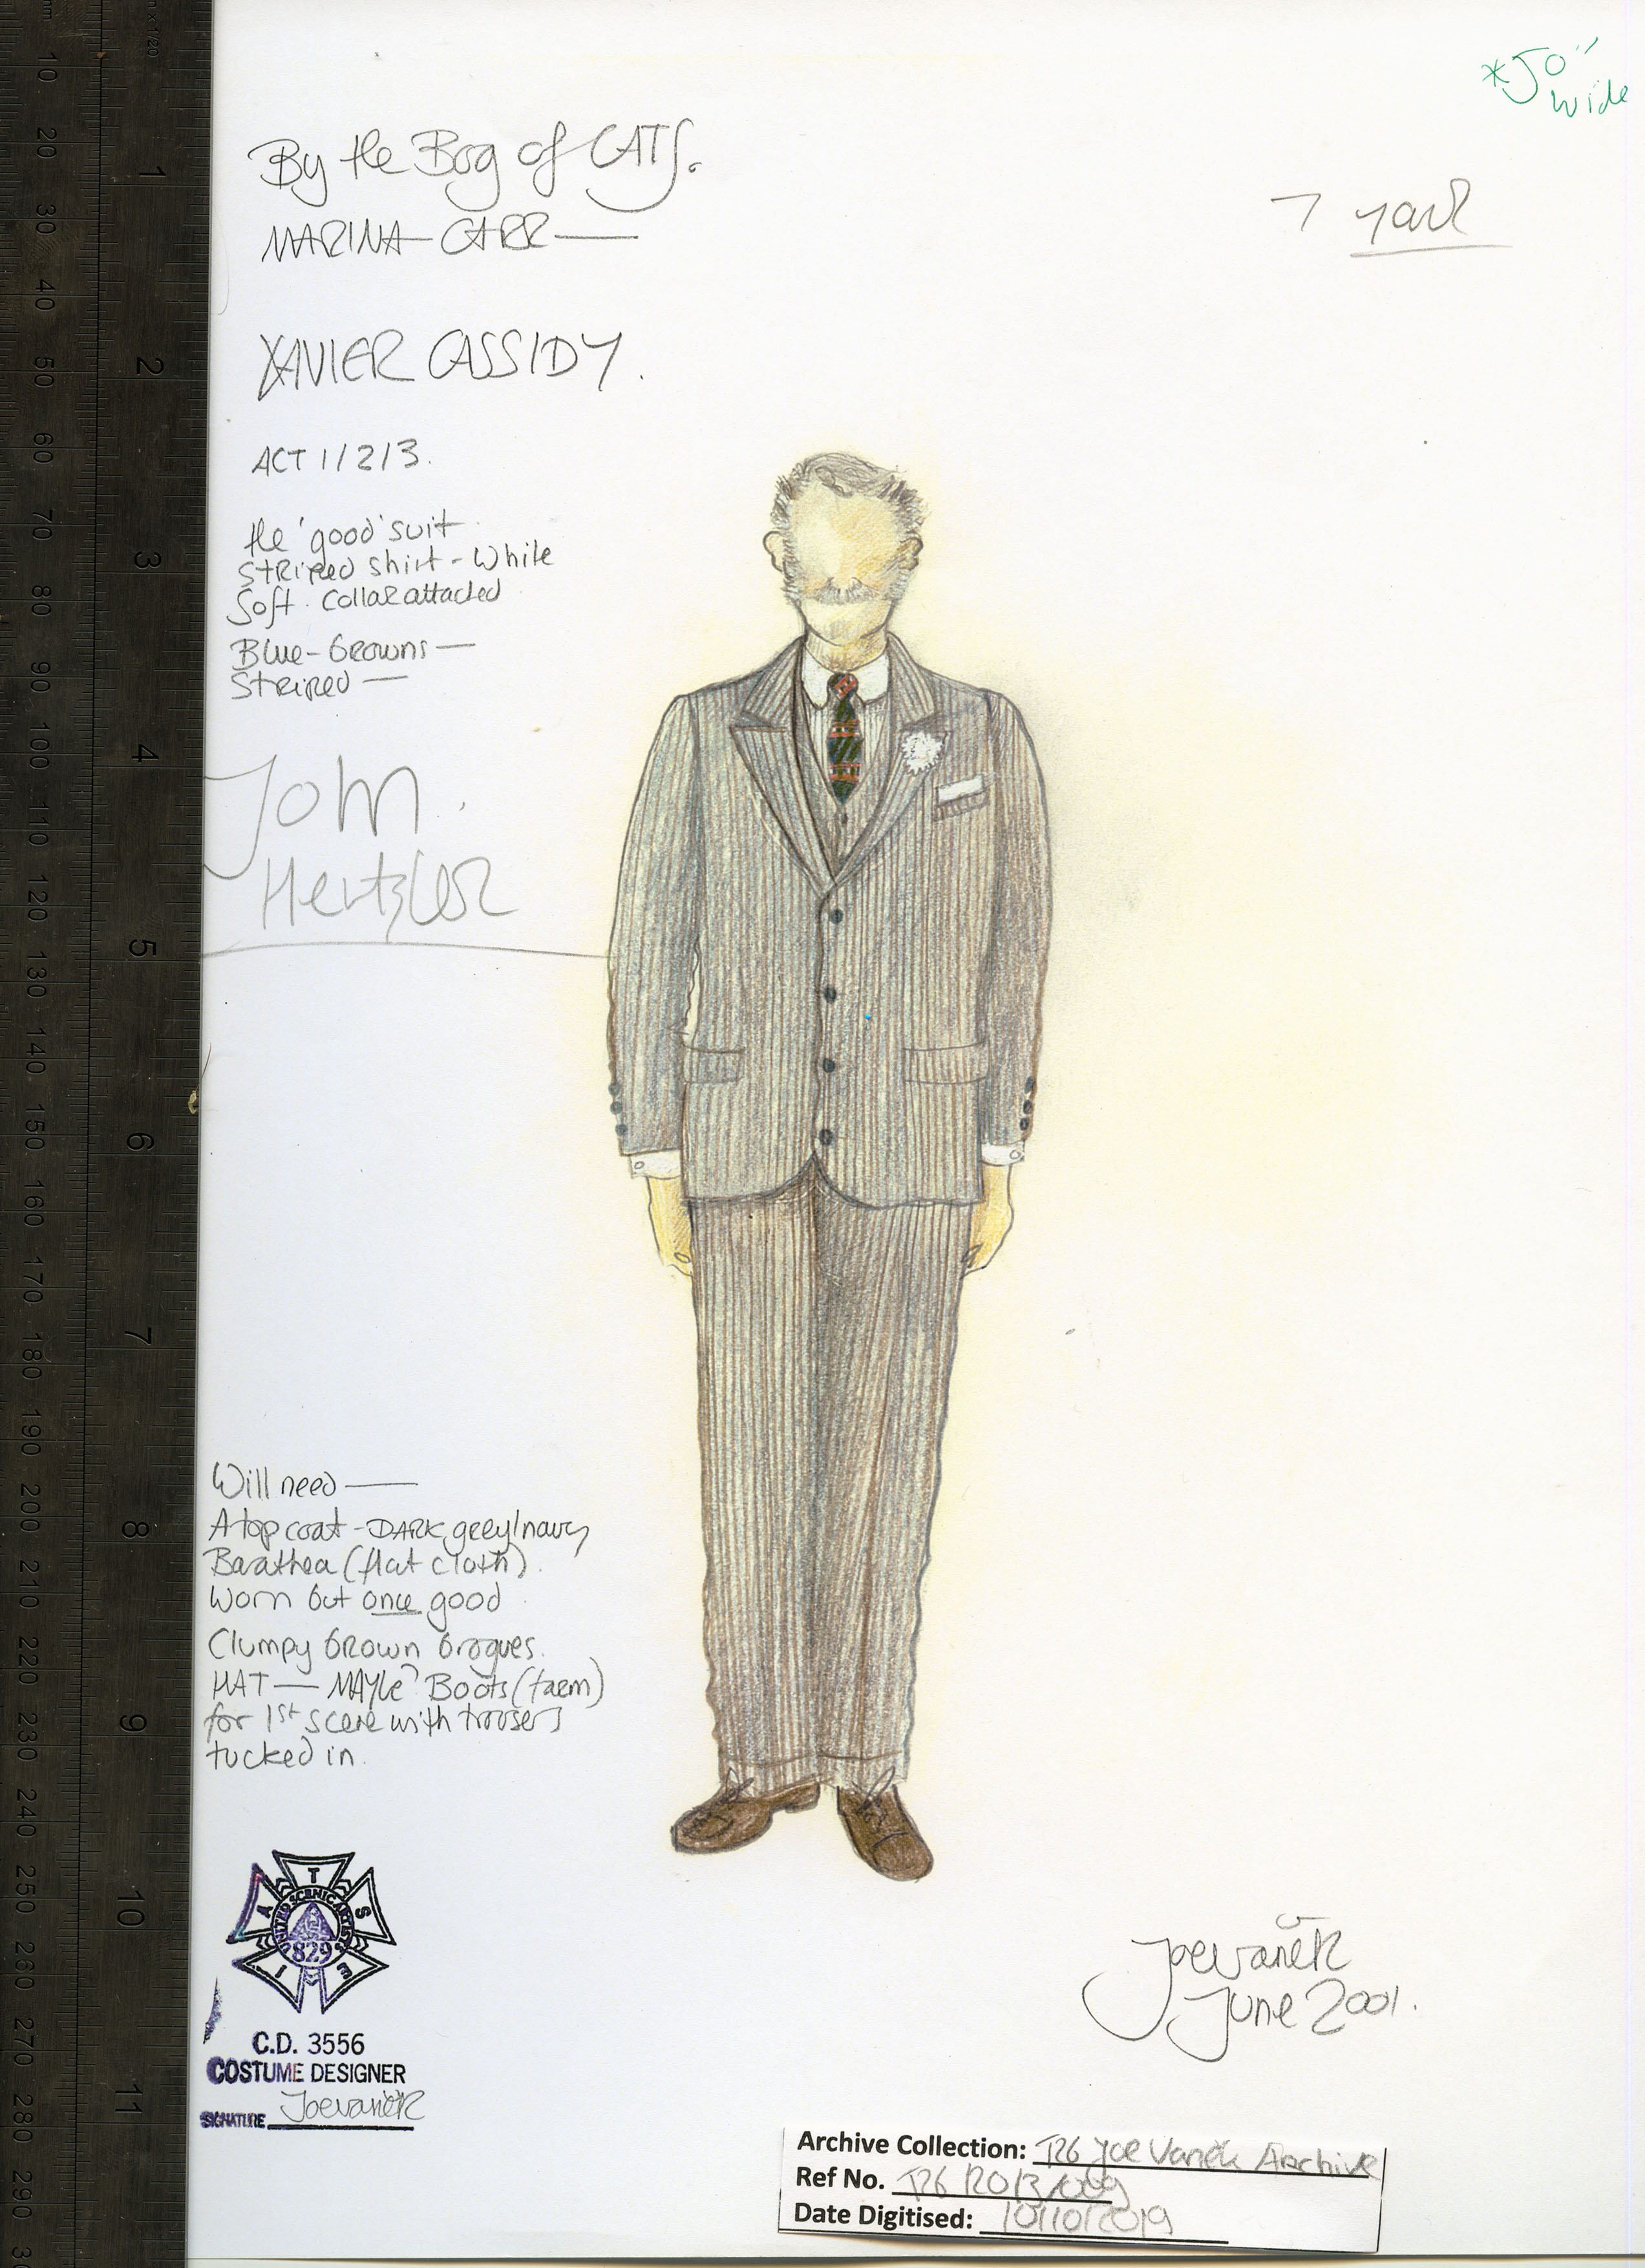 *50"
wide
7 yard
By the Bog of CATS.
MARINA CARR —
XAVIER CASSIDY.
ACT 1/2/3.
The 'good' suit
Striped shirt - White
Soft. Collar attached
Blue-Browns —
Striped —
John
Hertzler
Will need —
A top coat - DARK grey/navy
Barathea (flat cloth)
Worn but once good
Clumpy Brown Brogues.
HAT — MAYbe? Boots (farm)
for 1st scene with trousers
tucked in.
I A T S E
UNITED SCENIC ARTISTS
829
C.D. 3556
COSTUME DESIGNER
SIGNATURE Joe Vaněk
Joe Vaněk
June 2001.
Archive Collection: T26 Joe Vaněk Archive
Ref No.
Date Digitised: 10/10/2019
10 20 30 40 50 60 70 80 90 100 110 120 130 140 150 160 170 180 190 200 210 220 230 240 250 260 270 280 290
1 2 3 4 5 6 7 8 9 10 11